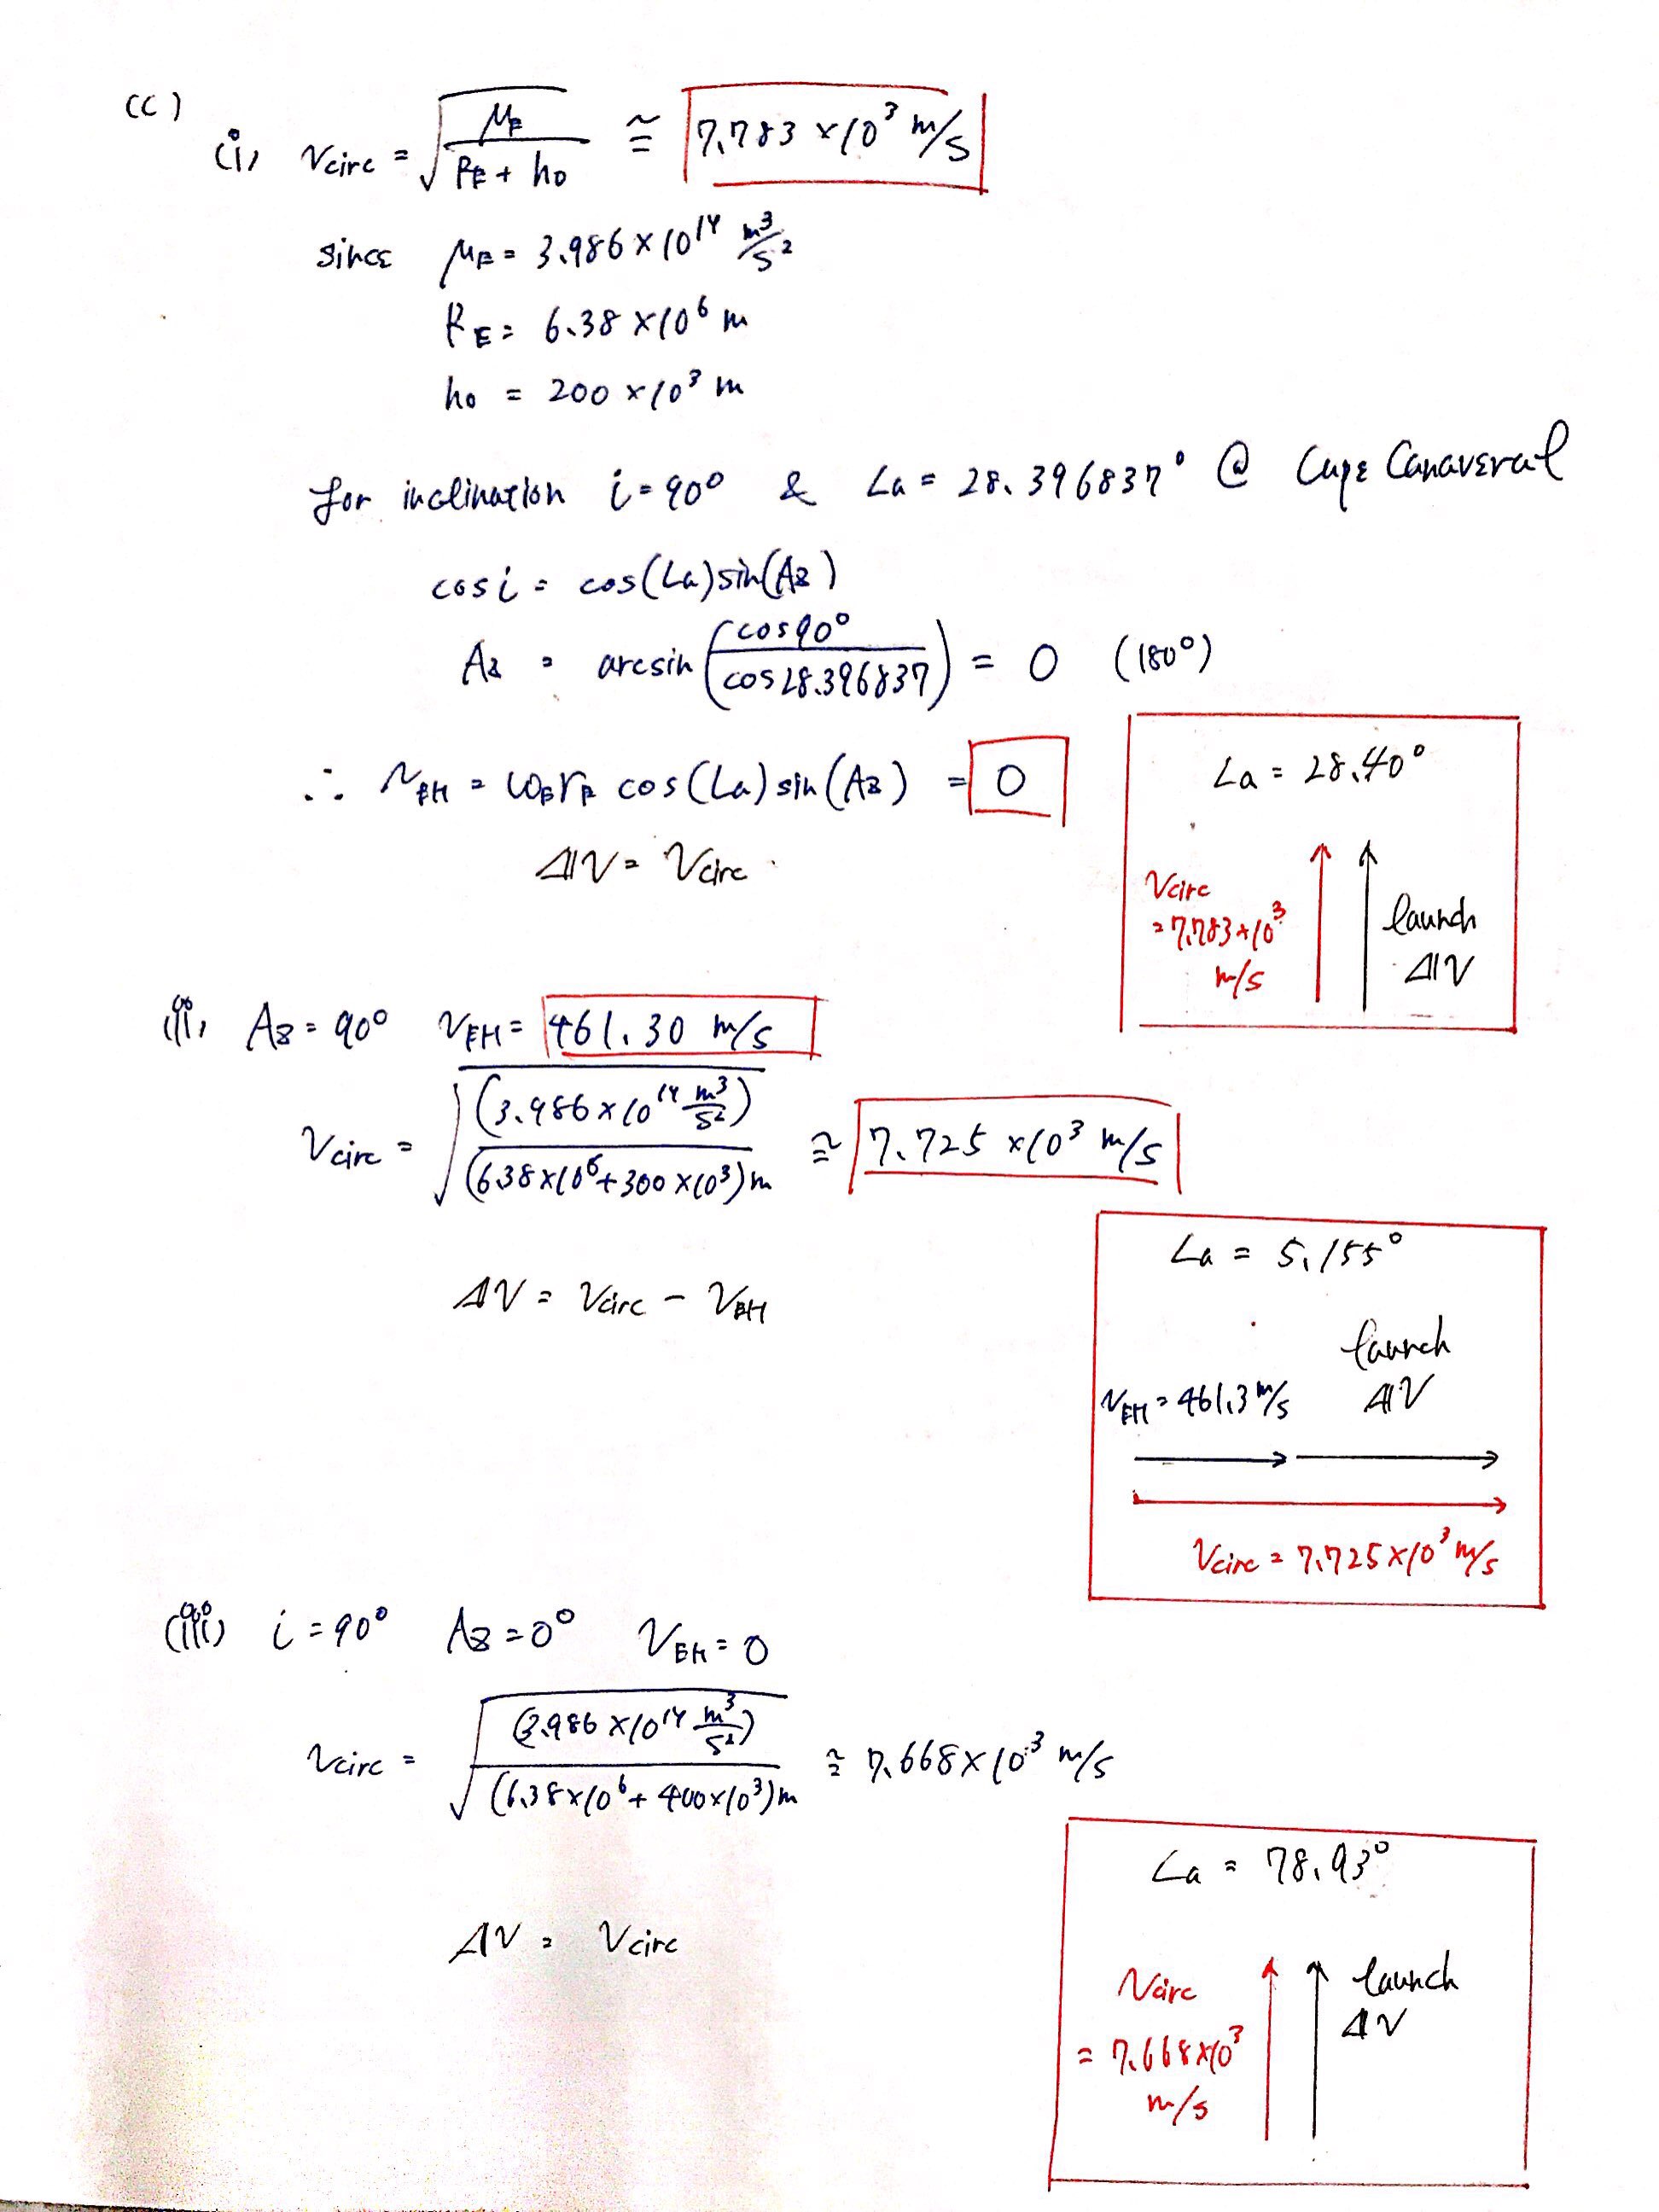 (c)
(i) Vcirc = √(μE / (RE + h0)) ≅ 7.783 × 10³ m/s
since μE = 3.986 × 10¹⁴ m³/s²
RE = 6.38 × 10⁶ m
h0 = 200 × 10³ m
for inclination i = 90° & La = 28.396837° @ Cape Canaveral
cos i = cos(La) sin(Az)
Az = arcsin(cos 90° / cos 28.396837) = 0 (180°)
∴ VEH = ωE rE cos(La) sin(Az) = 0
ΔV = Vcirc
La = 28.40°
Vcirc = 7.783 × 10³ m/s
launch ΔV
(ii) Az = 90° VEH = 461.30 m/s
Vcirc = √((3.986 × 10¹⁴ m³/s²) / (6.38 × 10⁶ + 300 × 10³) m) ≅ 7.725 × 10³ m/s
ΔV = Vcirc − VEH
La = 5.155°
launch
VEH = 461.3 m/s ΔV
Vcirc = 7.725 × 10³ m/s
(iii) i = 90° Az = 0° VEH = 0
Vcirc = √((3.986 × 10¹⁴ m³/s²) / (6.38 × 10⁶ + 400 × 10³) m) ≅ 7.668 × 10³ m/s
ΔV = Vcirc
La = 78.93°
Vcirc = 7.668 × 10³ m/s
launch ΔV